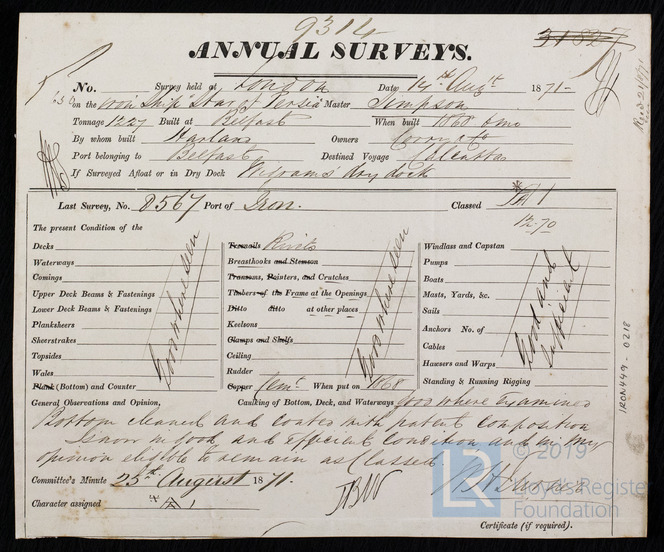 9314
ANNUAL SURVEYS.
31825
No. Survey held at London Date 14th Augst 1871-
on the Iron Ship "Star of Persia" Master Simpson
Tonnage 1227 Built at Belfast When built 1868 6mo
By whom built Harland Owners Corry & Co
Port belonging to Belfast Destined Voyage Calcutta
If Surveyed Afloat or in Dry Dock dry dock
Last Survey, No. 8567 Port of Iron. Classed A 1
12-70
The present Condition of the
Decks
Waterways
Comings
Upper Deck Beams & Fastenings
Lower Deck Beams & Fastenings
Planksheers
Sheerstrakes
Topsides
Wales
Plank (Bottom) and Counter
Good where seen
Treenails Rivets
Breasthooks and Stemson
Transoms, Pointers, and Crutches
Timbers of the Frame at the Openings
Ditto ditto at other places
Keelsons
Clamps and Shelfs
Ceiling
Rudder
Copper Cemt. When put on 1868
Good where seen
Windlass and Capstan
Pumps
Boats
Masts, Yards, &c.
Sails
Anchors No. of
Cables
Hausers and Warps
Standing & Running Rigging
Good and Sufficient
General Observations and Opinion, Caulking of Bottom, Deck, and Waterways Good where Examined
Bottom cleaned and coated with patent composition
Is now in good and efficient condition and in my
opinion eligible to remain as Classed.
Committee's Minute 25th August 1871.
Character assigned A 1
JBW
Certificate (if required).
IRON449-0218
© 2019
LR
Lloyd's Register
Foundation